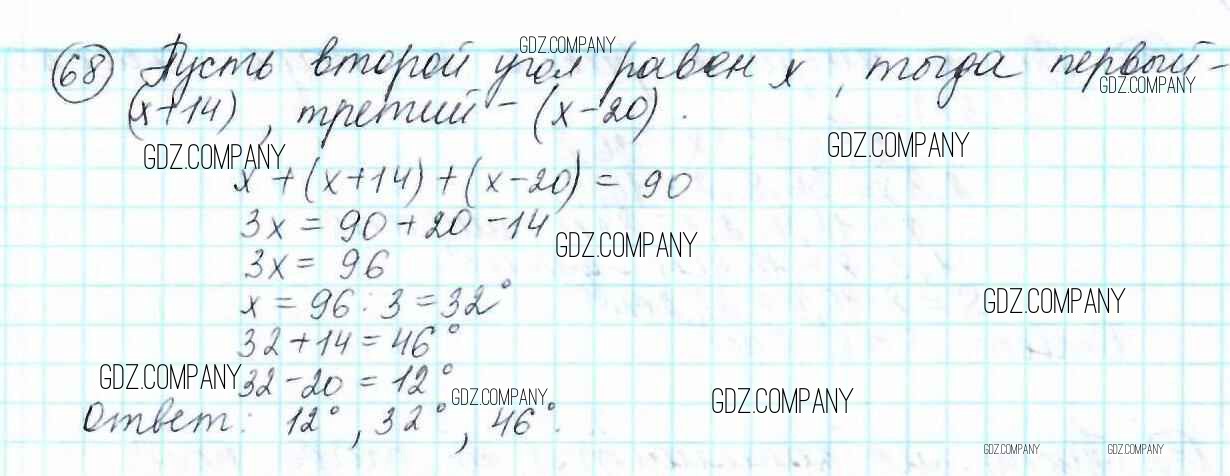 GDZ.COMPANY
68 Пусть второй угол равен x, тогда первый -
GDZ.COMPANY
(x+14), третий - (x-20).
GDZ.COMPANY GDZ.COMPANY
x + (x+14) + (x-20) = 90
3x = 90 + 20 - 14
GDZ.COMPANY
3x = 96
x = 96 : 3 = 32°
GDZ.COMPANY
32 + 14 = 46°
GDZ.COMPANY 32 - 20 = 12°
GDZ.COMPANY GDZ.COMPANY
Ответ: 12°, 32°, 46°.
GDZ.COMPANY GDZ.COMPANY